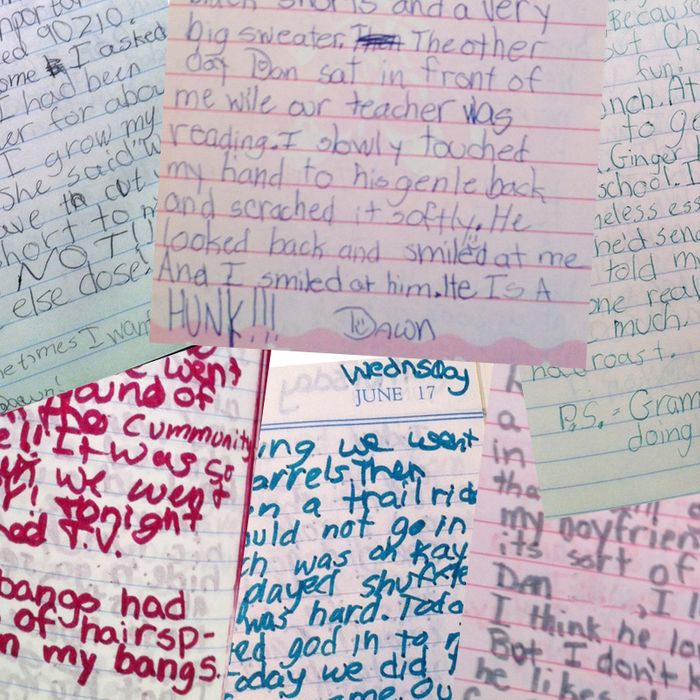 ed 90210.
ome I asked
I had been
er for abou
I grow my
she said "w
ave to cut
short to m
NOT!!
else dose!
metimes I want
black shorts and a very
big sweater. The other
day Dan sat in front of
me wile our teacher was
reading. I slowly touched
my hand to his genle back
and scrached it softly. He
looked back and smiled at me
And I smiled at him. He Is A
HUNK!!! Dawn
Because
out Ch
fun.
nch. Af
to g
Ginger
school. I
meless ess
he'd send
told my
one real
much.
roast.
P.S. - Gram
doing
went
round of
Cummunity
It was so
we went
tonight
T.V.
bangs had
of hairsp-
n my bangs.
Wednsday
JUNE 17
ing we went
arrels Then
n a trail rid
ould not go in
ch was oh kay
played shuffle
was hard. Toda
ed god in to
oday we did
a
in
tha
my boyfrien
its sort of
Dan , I
I think he lo
But I don't
he like